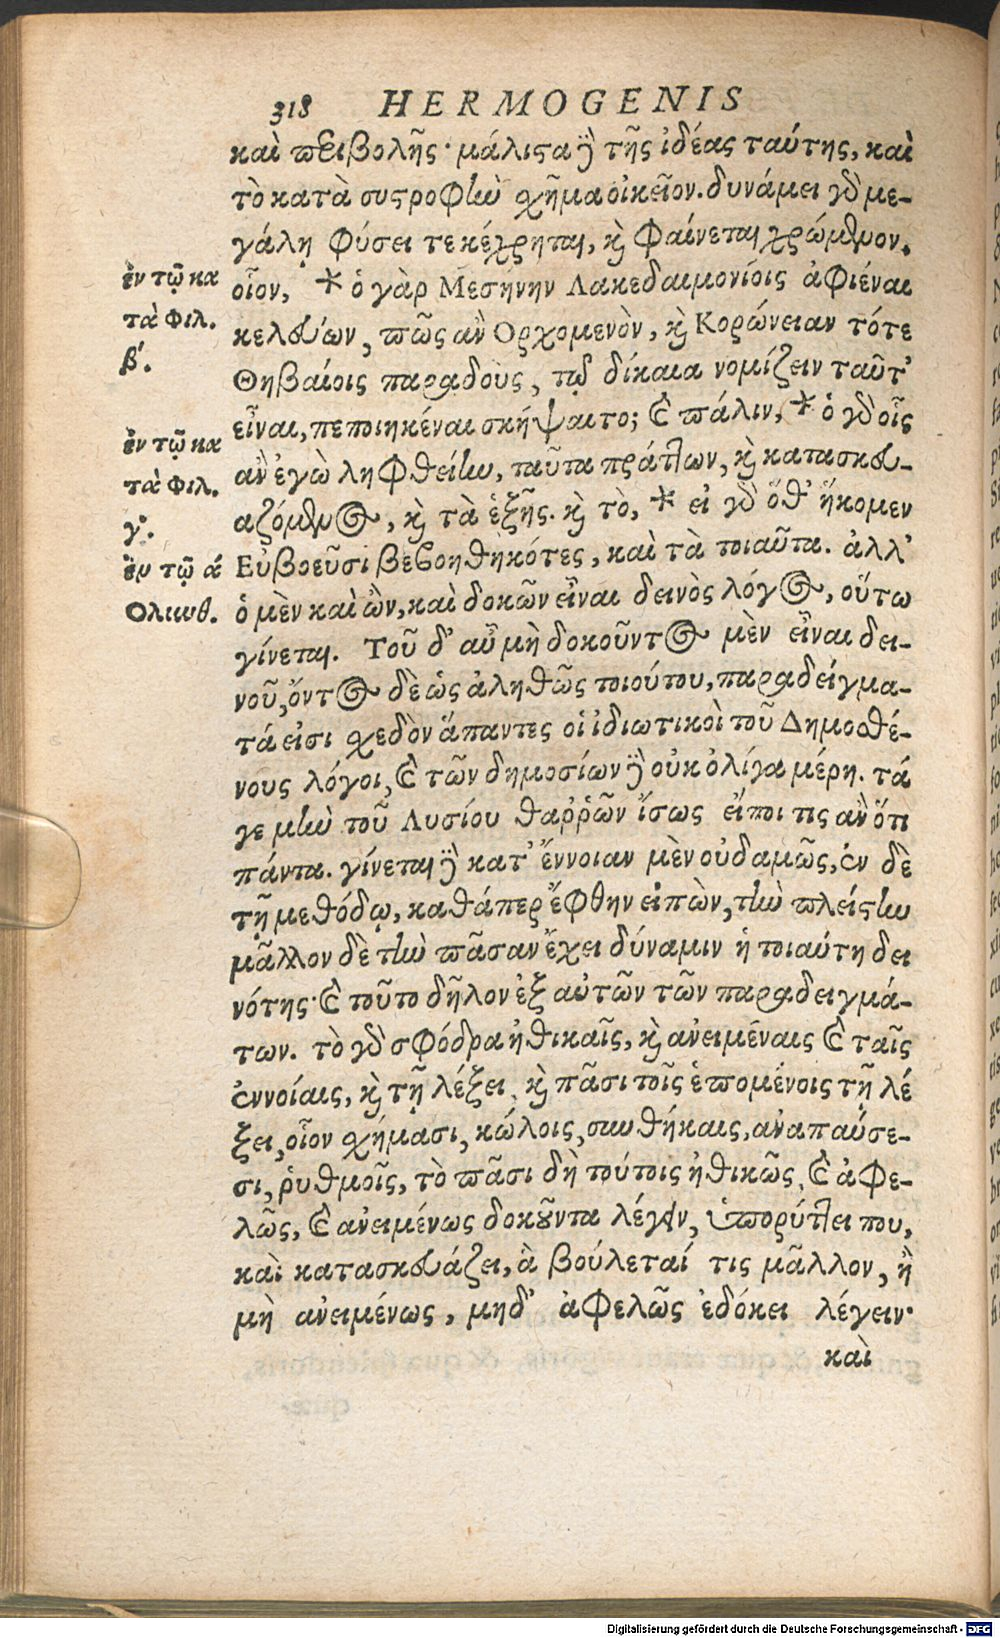 318 HERMOGENIS
καὶ περιβολῆς· μάλιστα δὲ τῆς ἰδέας ταύτης, καὶ
τὸ κατὰ συστροφὴν σχῆμα οἰκεῖον. δυνάμει γὸ με-
γάλῃ φύσει τε κέχρηται, κὶ φαίνεται χρώμενον.
οἷον, * ὁ γὰρ Μεσήνην Λακεδαιμονίοις ἀφιέναι
κελεύων, πῶς ἂν Ορχομενὸν, κὶ Κορώνειαν τότε
Θηβαίοις παραδοὺς, τῷ δίκαια νομίζειν ταῦτ'
εἶναι, πεποιηκέναι σκήψαιτο; καὶ πάλιν, * ὁ γὸ οἷς
ἂν ἐγὼ ληφθείην, ταῦτα πράττων, κὶ κατασκευ-
αζόμενος, κὶ τὰ ἑξῆς. κὶ τὸ, * εἰ γὸ ὅθ' ἥκομεν
Εὐβοεῦσι βεβοηθηκότες, καὶ τὰ τοιαῦτα. ἀλλ'
ὁ μὲν καὶ ὢν, καὶ δοκῶν εἶναι δεινὸς λόγος, οὕτω
γίνεται. Τοῦ δ' αὖ μὴ δοκοῦντος μὲν εἶναι δει-
νοῦ, ὄντος δὲ ὡς ἀληθῶς τοιούτου, παραδείγμα-
τά εἰσι σχεδὸν ἅπαντες οἱ ἰδιωτικοὶ τοῦ Δημοσθέ-
νους λόγοι, καὶ τῶν δημοσίων δὲ οὐκ ὀλίγα μέρη. τά
γε μὴν τοῦ Λυσίου θαῤῥῶν ἴσως εἴποι τις ἂν ὅτι
πάντα. γίνεται δὲ κατ' ἔννοιαν μὲν οὐδαμῶς, ἐν δὲ
τῇ μεθόδῳ, καθάπερ ἔφθην εἰπὼν, τὴν πλείστην
μᾶλλον δὲ τὴν πᾶσαν ἔχει δύναμιν ἡ τοιαύτη δει
νότης· καὶ τοῦτο δῆλον ἐξ αὐτῶν τῶν παραδειγμά-
των. τὸ γὸ σφόδρα ἠθικαῖς, κὶ ἀνειμέναις καὶ ταῖς
ἐννοίαις, κὶ τῇ λέξει, κὶ πᾶσι τοῖς ἑπομένοις τῇ λέ
ξει, οἷον σχήμασι, κώλοις, συνθήκαις, ἀναπαύσε-
σι, ῥυθμοῖς, τὸ πᾶσι δὴ τούτοις ἠθικῶς, καὶ ἀφε-
λῶς, καὶ ἀνειμένως δοκοῦντα λέγειν, ὑπορύττει που,
καὶ κατασκευάζει, ἃ βούλεταί τις μᾶλλον, ἢ
μὴ ἀνειμένως, μηδ' ἀφελῶς ἐδόκει λέγειν·
καὶ
ἐν τῷ κα
τὰ Φιλ.
β'.
ἐν τῷ κα
τὰ Φιλ.
γ'.
ἐν τῷ ά
Ολιωθ.
Digitalisierung gefördert durch die Deutsche Forschungsgemeinschaft - DFG